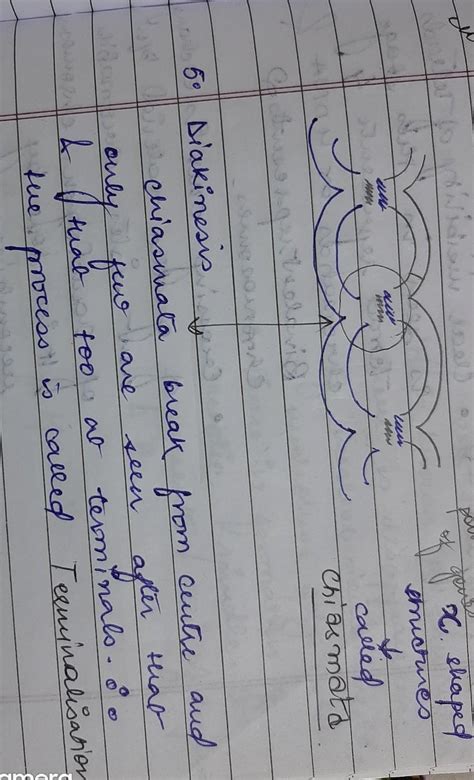 X. shaped
structures
called
Chiasmata
5. Diakinesis
chiasmata break from centre and
only few are seen after that
& that too at terminals. ∴
the process is called Terminalisation